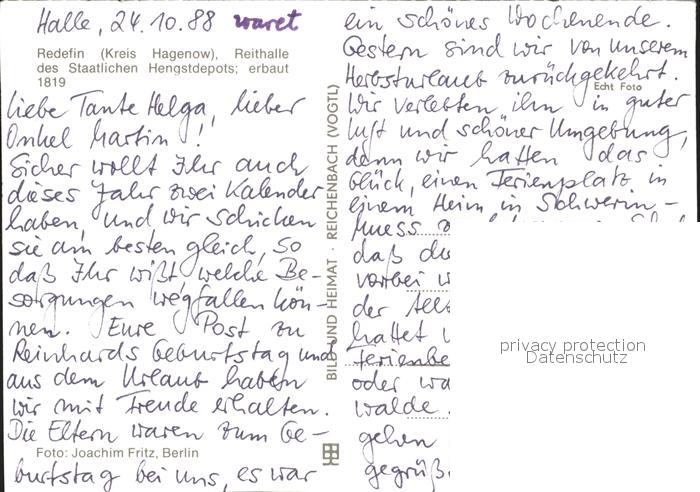 Halle, 24.10.88 waret
Redefin (Kreis Hagenow), Reithalle
des Staatlichen Hengstdepots; erbaut
1819
Liebe Tante Helga, lieber
Onkel Martin!
Sicher wollt Ihr auch
dieses Jahr zwei Kalender
haben, und wir schicken
sie am besten gleich, so
daß Ihr wißt welche Be-
sorgungen wegfallen kön-
nen. Eure Post zu
Reinhards Geburtstag und
aus dem Urlaub haben
wir mit Freude erhalten.
Die Eltern waren zum Ge-
Foto: Joachim Fritz, Berlin
burtstag bei uns, es war
BILD UND HEIMAT · REICHENBACH (VOGTL)
ein schönes Wochenende.
Gestern sind wir von unserem
Herbsturlaub zurückgekehrt.
Echt Foto
Wir verlebten ihn in guter
Luft und schöner Umgebung,
denn wir hatten das
Glück, einen Ferienplatz in
einem Heim in Schwerin-
Muess
daß du
vorbei
der
hattet
oder
walde.
gehen
privacy protection
Datenschutz